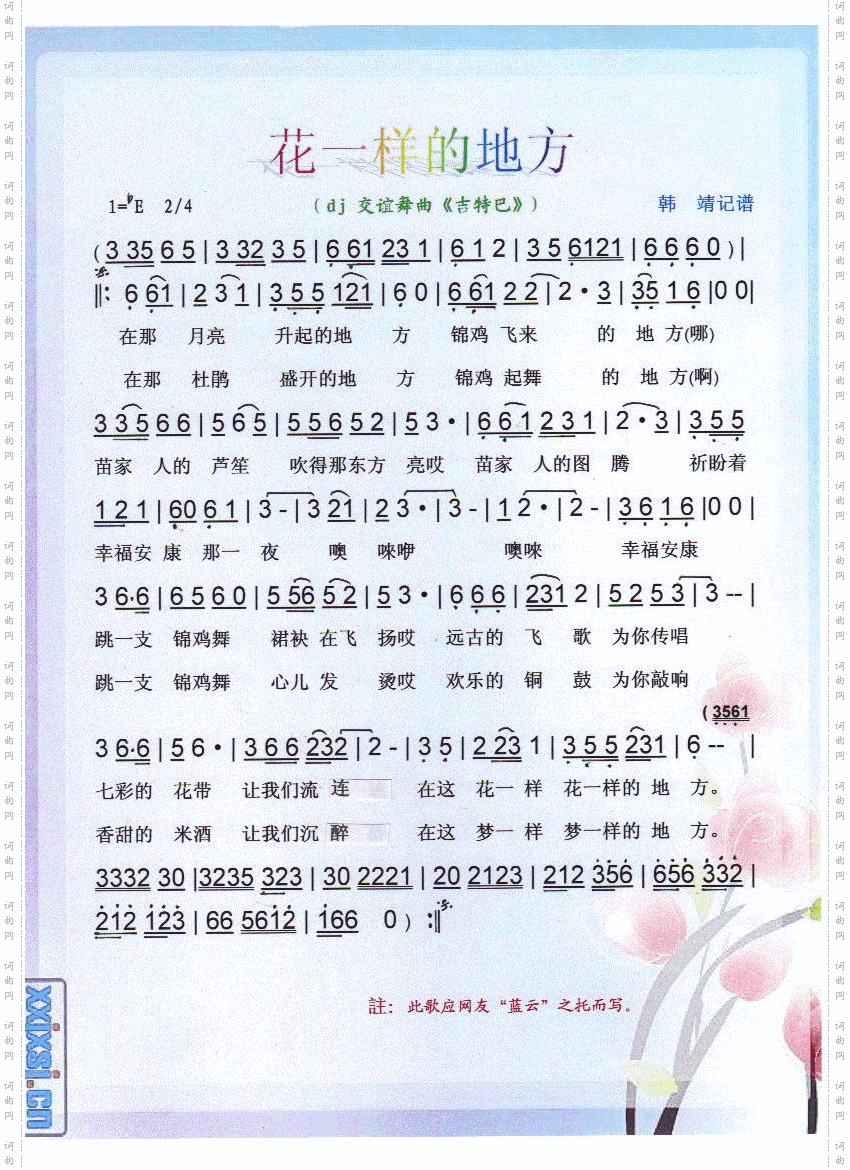 花一样的地方
1=♭E 2/4 （dj 交谊舞曲《吉特巴》） 韩 靖记谱
(3 35 6 5 | 3 32 3 5 | 6 61 23 1 | 6 1 2 | 3 5 6121 | 6 6 6 0 )|
‖: 6 61 | 2 3 1 | 3 5 5 121 | 6 0 | 6 61 2 2 | 2 · 3 | 35 1 6 |0 0|
在那 月亮 升起的地 方 锦鸡 飞来 的 地 方(哪)
在那 杜鹃 盛开的地 方 锦鸡 起舞 的 地 方(啊)
3 3 5 6 6 | 5 6 5 | 5 5 6 5 2 | 5 3 · | 6 6 1 2 3 1 | 2 · 3 | 3 5 5
苗家 人的 芦笙 吹得那东方 亮哎 苗家 人的图 腾 祈盼着
1 2 1 | 60 6 1 | 3 - | 3 21 | 2 3 · | 3 - | 1 2 · | 2 - | 3 6 1 6 |0 0 |
幸福安 康 那一 夜 噢 唻咿 噢唻 幸福安康
3 6·6 | 6 5 6 0 | 5 56 5 2 | 5 3 · | 6 6 6 | 231 2 | 5 2 5 3 | 3 -- |
跳一支 锦鸡舞 裙袂 在飞 扬哎 远古的 飞 歌 为你传唱
跳一支 锦鸡舞 心儿 发 烫哎 欢乐的 铜 鼓 为你敲响
( 3561
3 6·6 | 5 6 · | 3 6 6 232 | 2 - | 3 5 | 2 23 1 | 3 5 5 231 | 6 -- |
七彩的 花带 让我们流 连 在这 花一 样 花一样的 地 方。
香甜的 米酒 让我们沉 醉 在这 梦一 样 梦一样的 地 方。
3332 30 |3235 323 | 30 2221 | 20 2123 | 212 356 | 656 332 |
212 123 | 66 5612 | 166 0 ) :‖
註：此歌应网友“蓝云”之托而写。
xxixsj.cn
词曲网